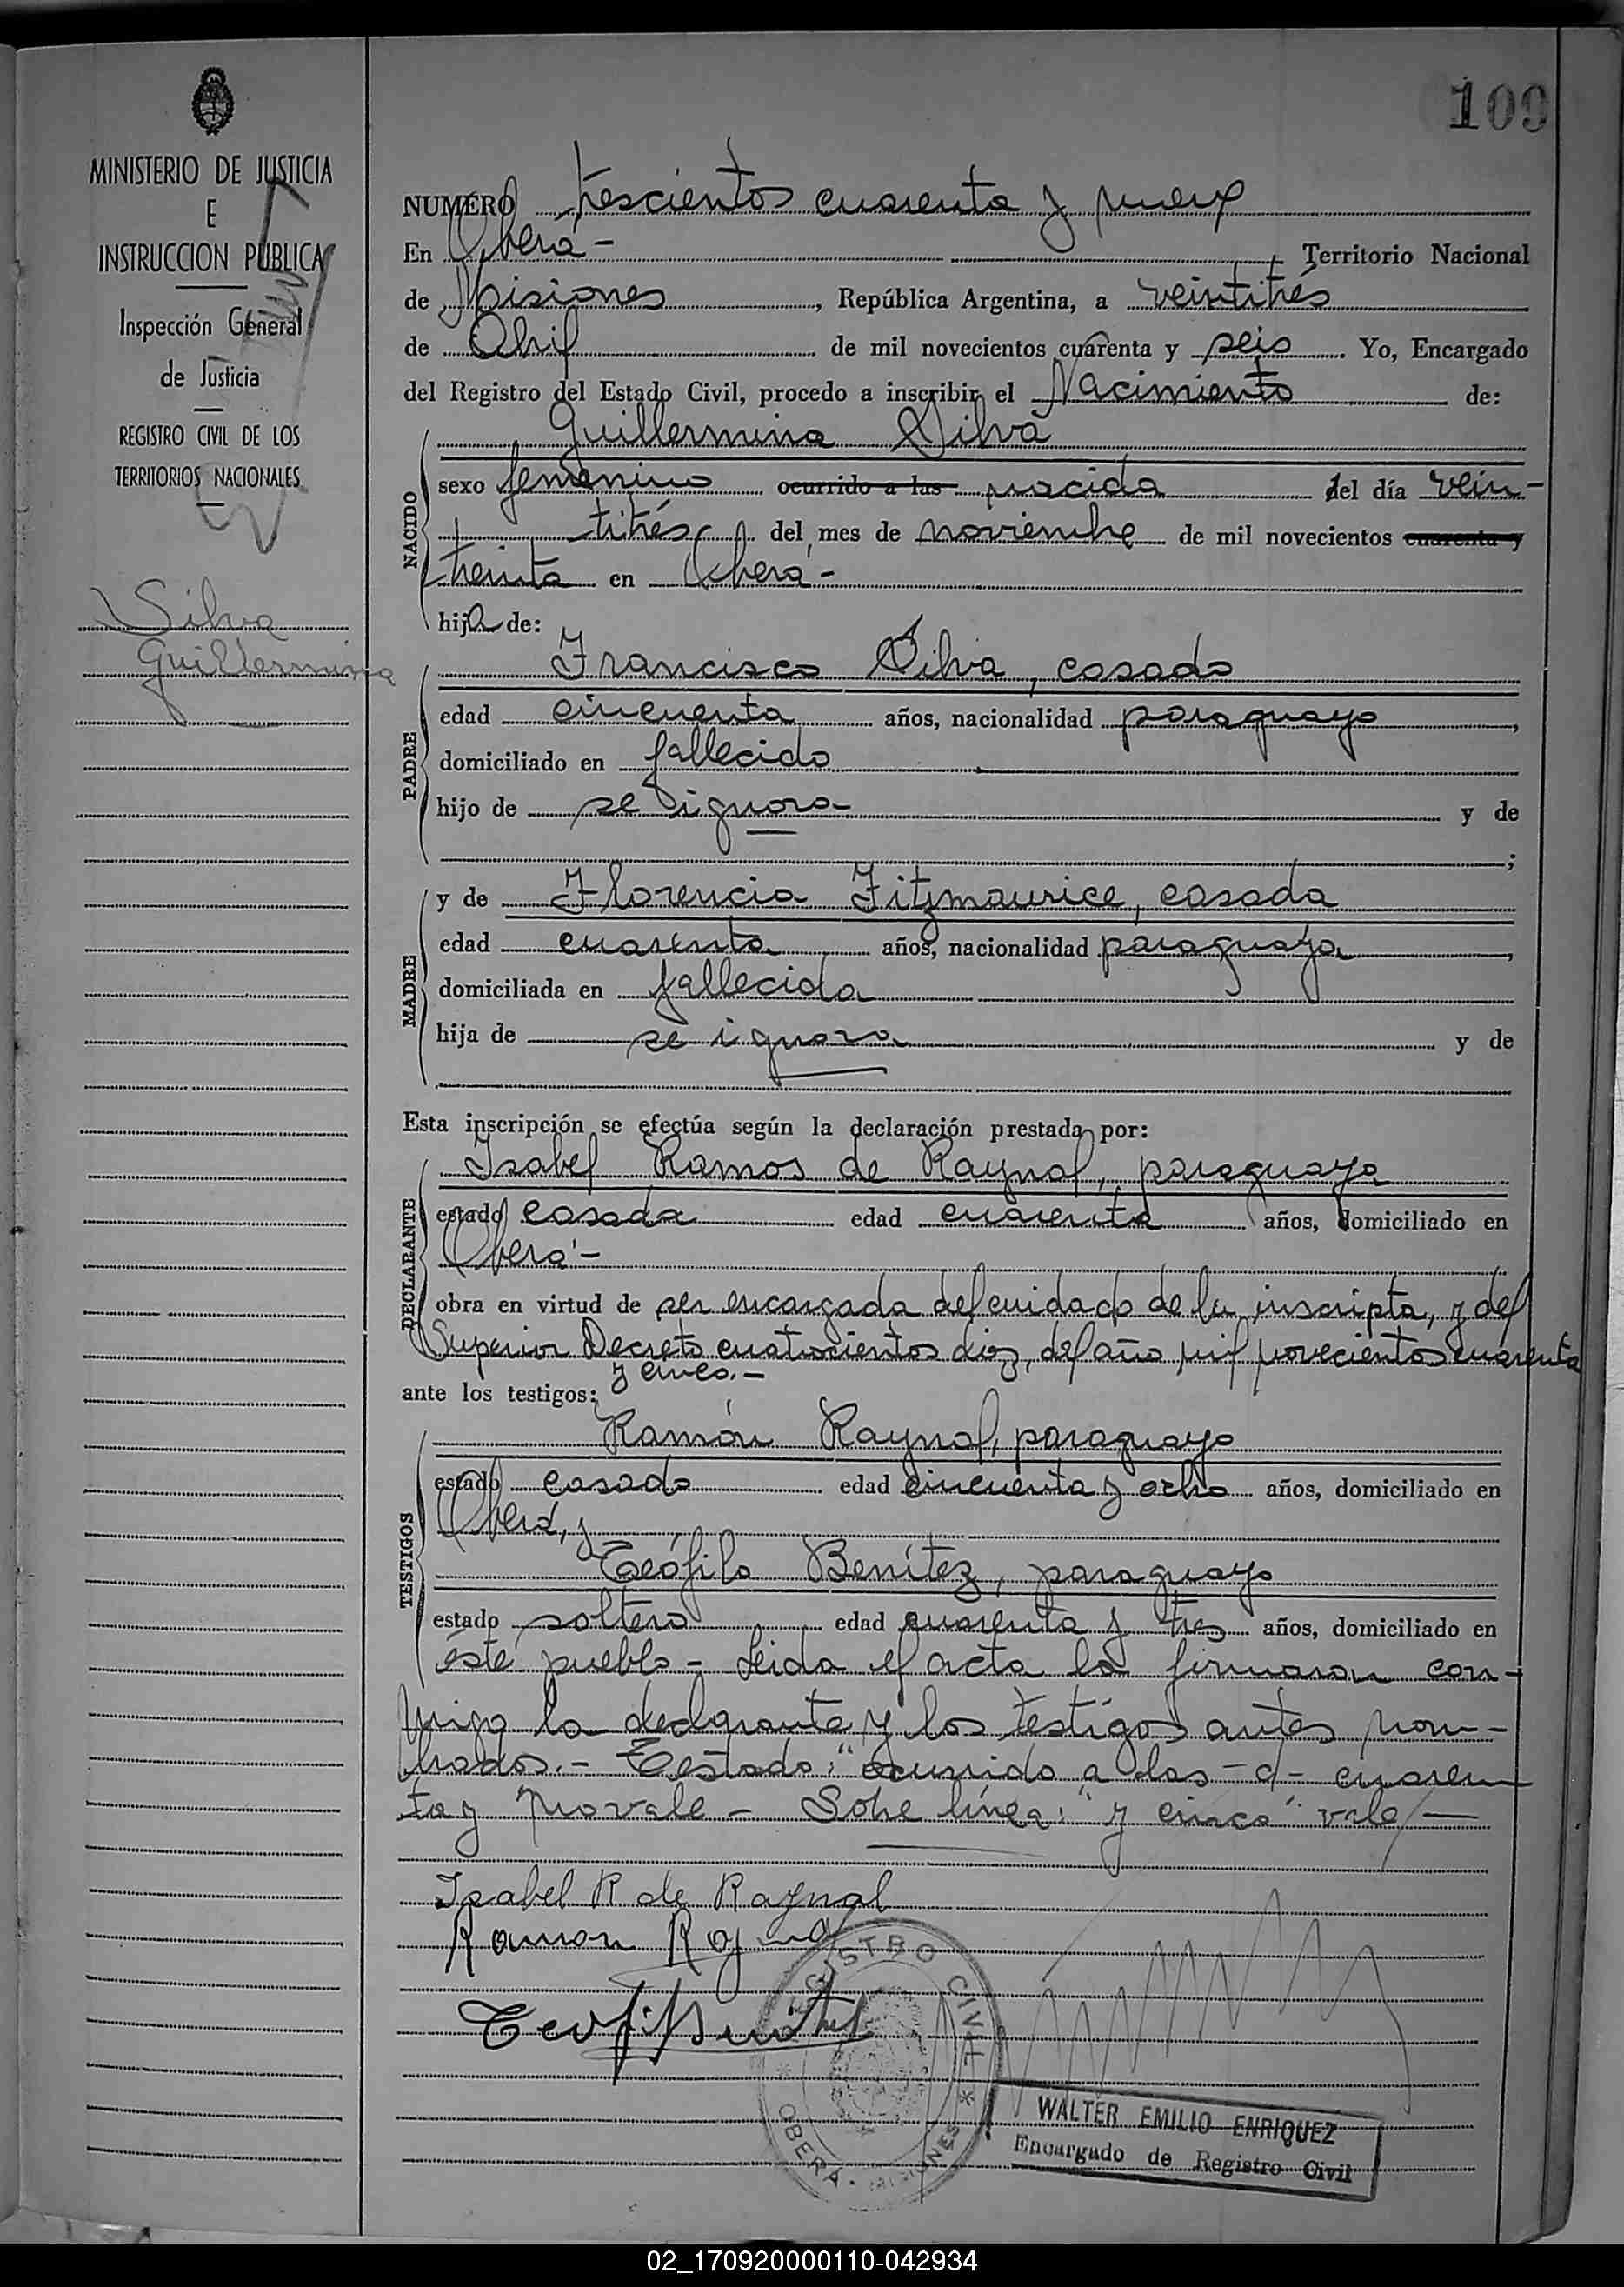 109
MINISTERIO DE JUSTICIA
E
INSTRUCCION PUBLICA
Inspección General
de Justicia
REGISTRO CIVIL DE LOS
TERRITORIOS NACIONALES
Silva
Guillermina
NUMERO trescientos cuarenta y nueve
En Oberá - Territorio Nacional
de Misiones, República Argentina, a veintitrés
de Abril de mil novecientos cuarenta y seis. Yo, Encargado
del Registro del Estado Civil, procedo a inscribir el Nacimiento de:
Guillermina Silva
NACIDO
sexo femenino ocurrido a las nacida del día vein-
titrés del mes de noviembre de mil novecientos cuarenta y
treinta en Oberá -
hija de:
PADRE
Francisco Silva, casado
edad cincuenta años, nacionalidad paraguayo,
domiciliado en fallecido
hijo de se ignora y de
;
MADRE
y de Florencia Fitzmaurice, casada
edad cuarenta años, nacionalidad paraguaya,
domiciliada en fallecida
hija de se ignora y de
Esta inscripción se efectúa según la declaración prestada por:
DECLARANTE
Isabel Ramos de Raynal, paraguaya
estado casada edad cuarenta años, domiciliado en
Oberá -
obra en virtud de ser encargada del cuidado de la inscripta, y del
Superior Decreto cuatrocientos diez, del año mil novecientos cuarenta
y cinco.-
ante los testigos:
TESTIGOS
Ramón Raynal, paraguayo
estado casado edad cincuenta y ocho años, domiciliado en
Oberá, y
Teófilo Benítez, paraguayo
estado soltero edad cuarenta y tres años, domiciliado en
éste pueblo - Leida el acta la firmaron con-
migo la declarante y los testigos antes nom-
brados.- Testado: "ocurrido a las - d - cuaren
ta y no vale - Sobre línea: "y cinco" vale
Isabel R de Raynal
Ramon Raynal
REGISTRO CIVIL
* OBERÁ - MISIONES *
WALTER EMILIO ENRIQUEZ
Encargado de Registro Civil
02_170920000110-042934